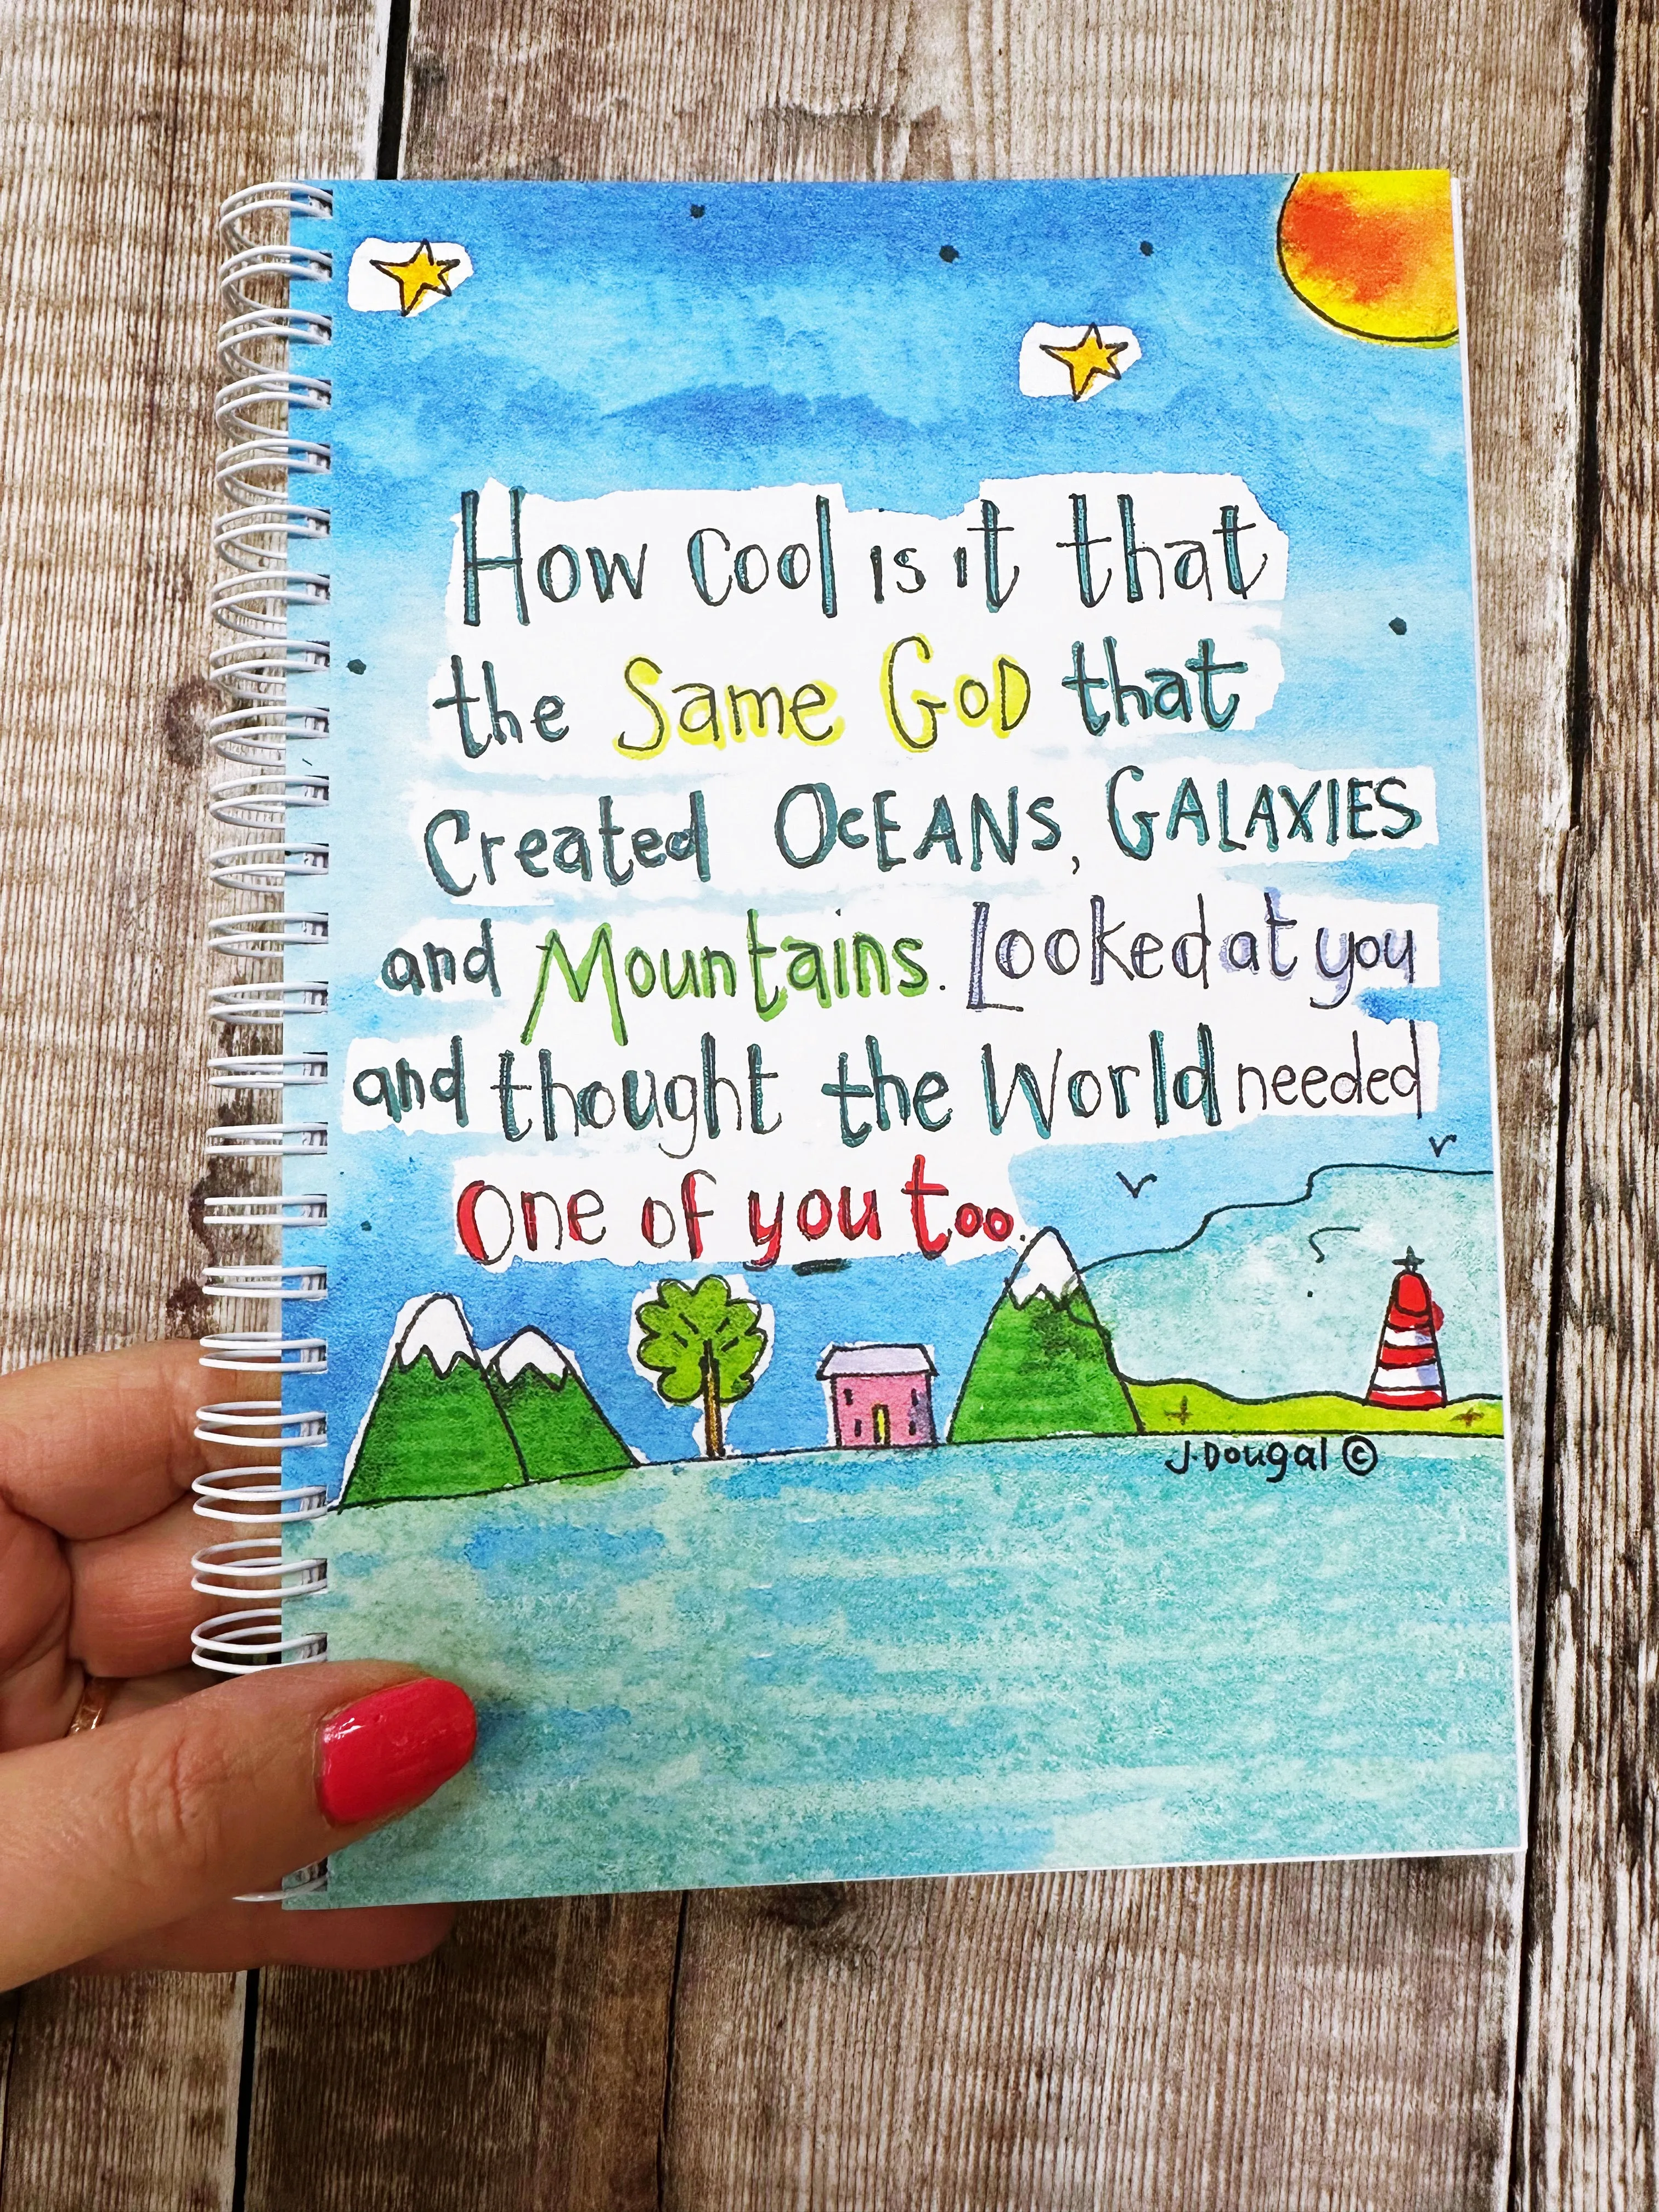 How cool is it that
the Same God that
Created OcEANs, GALAXIES
and Mountains. Looked at you
and thought the World needed
One of you too.
J. Dougal ©